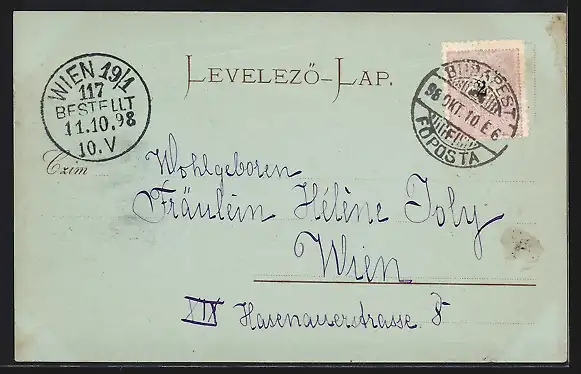 WIEN 19/1
117
BESTELLT
11.10.98
10.V
LEVELEZŐ-LAP.
BUDAPEST
98 OKT. 10 E 6
FŐPOSTA
2
Czim
Wohlgeboren
Fräulein Hélène Joly
Wien
XIX Hasenauerstrasse 8